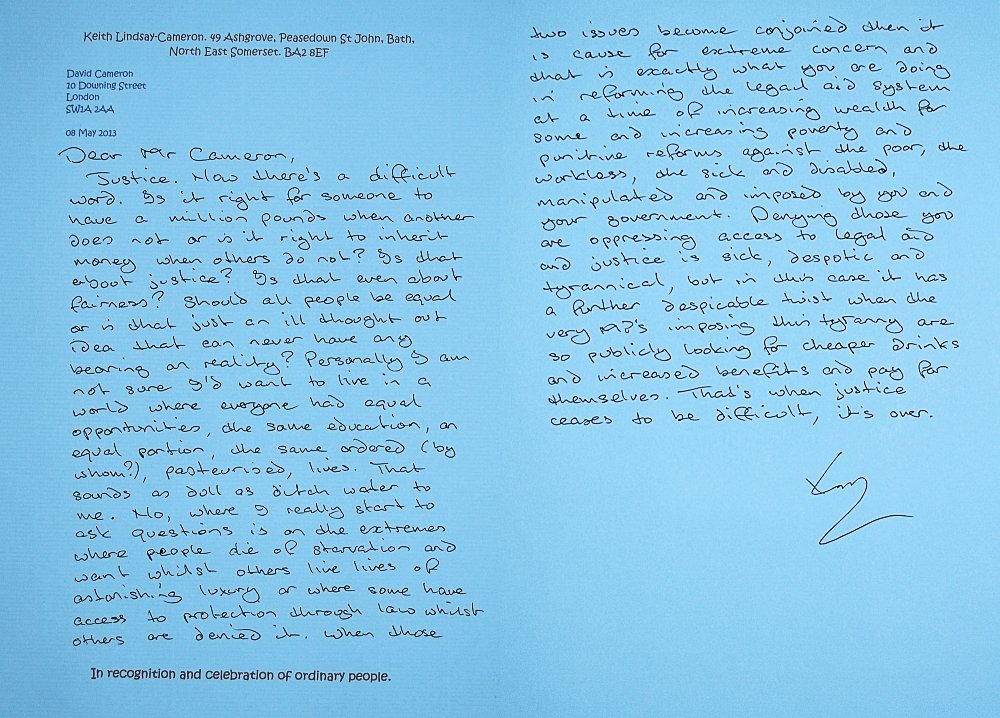 Keith Lindsay-Cameron. 49 Ashgrove, Peasedown St John, Bath,
North East Somerset. BA2 8EF
David Cameron
10 Downing Street
London
SW1A 2AA
08 May 2013
Dear Mr Cameron,
Justice. Now there's a difficult
word. Is it right for someone to
have a million pounds when another
does not or is it right to inherit
money when others do not? Is that
about justice? Is that even about
fairness? Should all people be equal
or is that just an ill thought out
idea that can never have any
bearing on reality? Personally I am
not sure I'd want to live in a
world where everyone had equal
opportunities, the same education, an
equal portion, the same ordered (by
whom?), pasteurised, lives. That
sounds as dull as ditch water to
me. No, where I really start to
ask questions is on the extremes
where people die of starvation and
want whilst others live lives of
astonishing luxury or where some have
access to protection through law whilst
others are denied it. When those
In recognition and celebration of ordinary people.
two issues become conjoined then it
is cause for extreme concern and
that is exactly what you are doing
in reforming the legal aid system
at a time of increasing wealth for
some and increasing poverty and
punitive reforms against the poor, the
workless, the sick and disabled,
manipulated and imposed by you and
your government. Denying those you
are oppressing access to legal aid
and justice is sick, despotic and
tyrannical, but in this case it has
a further despicable twist when the
very MP's imposing this tyranny are
so publicly looking for cheaper drinks
and increased benefits and pay for
themselves. That's when justice
ceases to be difficult, it's over.